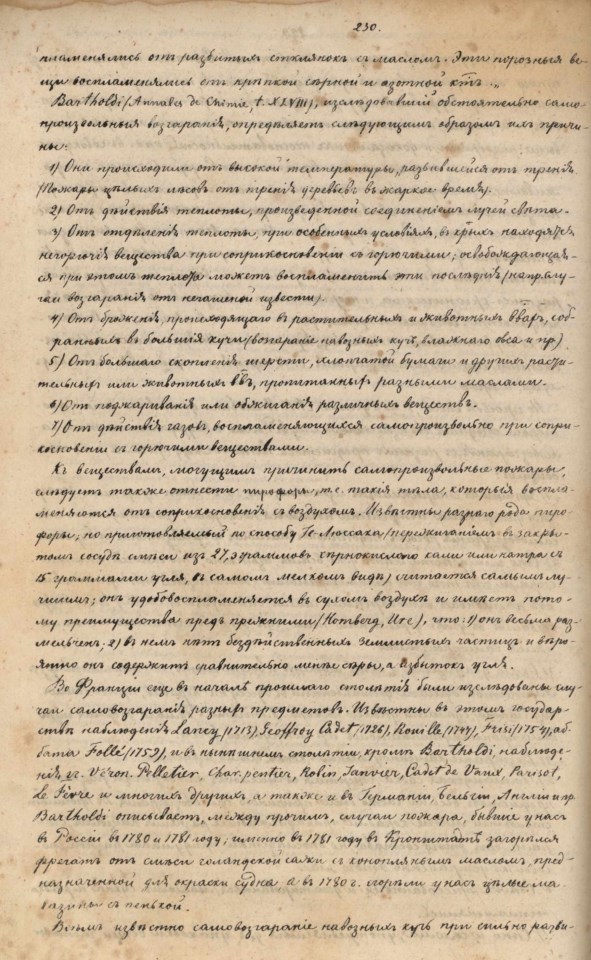 230.
пламенялись отъ разбитыхъ стклянокъ съ масломъ. Эти порозныя ве-
щи воспламенялись отъ крѣпкой сѣрной и азотной кт.ъ „
Bartholdi (Annales de Chimie, t. XLVIII), изслѣдовавшій обстоятельно само-
произвольныя возгаранія, опредѣляетъ слѣдующимъ образомъ ихъ причи-
ны:
1) Они происходили отъ высокой температуры, развившейся отъ тренія.
(Пожары цѣлыхъ лѣсовъ отъ тренія деревьевъ въ жаркое время).
2) Отъ дѣйствія теплоты, произведенной соединеніемъ лучей свѣта.
3) Отъ отдѣленія теплоты, при особенныхъ условіяхъ, въ крыхъ находятся
негорючія вещества при соприкосновеніи съ горючими; освобождающая-
ся при этомъ теплота можетъ воспламенить эти послѣднія (напр. слу-
чаи возгаранія отъ негашеной извести).
4) Отъ броженія, происходящаго въ растительныхъ и животныхъ ввахъ, соб-
ранныхъ въ большія кучи (возгараніе навозныхъ кучъ, влажнаго овса и пр.)
5) Отъ большаго скопленія шерсти, хлопчатой бумаги и другихъ расти-
тельныхъ или животныхъ ввъ, пропитанныхъ разными маслами.
6) От поджариванія или обжиганія различныхъ веществъ.
7) Отъ дѣйствія газовъ, воспламеняющихся самопроизвольно при сопри-
косновеніи съ горючими веществами.
Къ веществамъ, могущимъ причинить самопроизвольные пожары,
слѣдуетъ также отнести пирофоры, т.е. такія тѣла, которыя воспла-
меняются отъ соприкосновенія съ воздухомъ. Извѣстны разнаго рода пиро-
форы; но приготовляемый по способу Ге-Люссака (пережиганіемъ въ закры-
томъ сосудѣ смѣси изъ 27,3 граммовъ сѣрнокислаго кали или натра съ
15 граммами угля, въ самомъ мелкомъ видѣ) считается самымъ лу-
чшимъ; онъ удобовоспламеняется въ сухомъ воздухѣ и имѣетъ пото-
му преимущества предъ прежними (Homberg, Ure), что: 1) онъ весьма раз-
мельченъ; 2) въ немъ нѣтъ бездѣйственныхъ землистыхъ частицъ и вѣро-
ятно онъ содержитъ сравнительно менѣе сѣры, а избытокъ угля.
Во Франціи еще въ началѣ прошлаго столѣтія были изслѣдованы слу-
чаи самовозгаранія разныхъ предметовъ. Извѣстны въ этомъ государ-
ствѣ наблюденія Lancy (1713), Geoffroy Cadet (1726), Rouille (1744), Frisi (1754), аб-
бата Folle (1759), и въ нынѣшнемъ столѣтіи, кромѣ Bartholdi, наблюде-
нія гг. Véron, Pelletier, Charpentier, Robin, Janvier, Cadet de Vaux, Parisot,
Le Fèvre и многихъ другихъ, а также и въ Германіи, Бельгіи, Англіи и пр.
Bartholdi описываетъ, между прочимъ, случаи пожара, бывшіе у насъ
въ Россіи въ 1780 и 1781 году; именно въ 1781 году въ Кронштатѣ загорѣлся
фрегатъ отъ смѣси голандской сажи съ коноплянымъ масломъ, пред-
назначенной для окраски судна а въ 1780 г. сгорѣли у насъ цѣлые ма-
газины съ пенькой.
Всѣмъ извѣстно самовозгараніе навозныхъ кучъ при сильно разви-